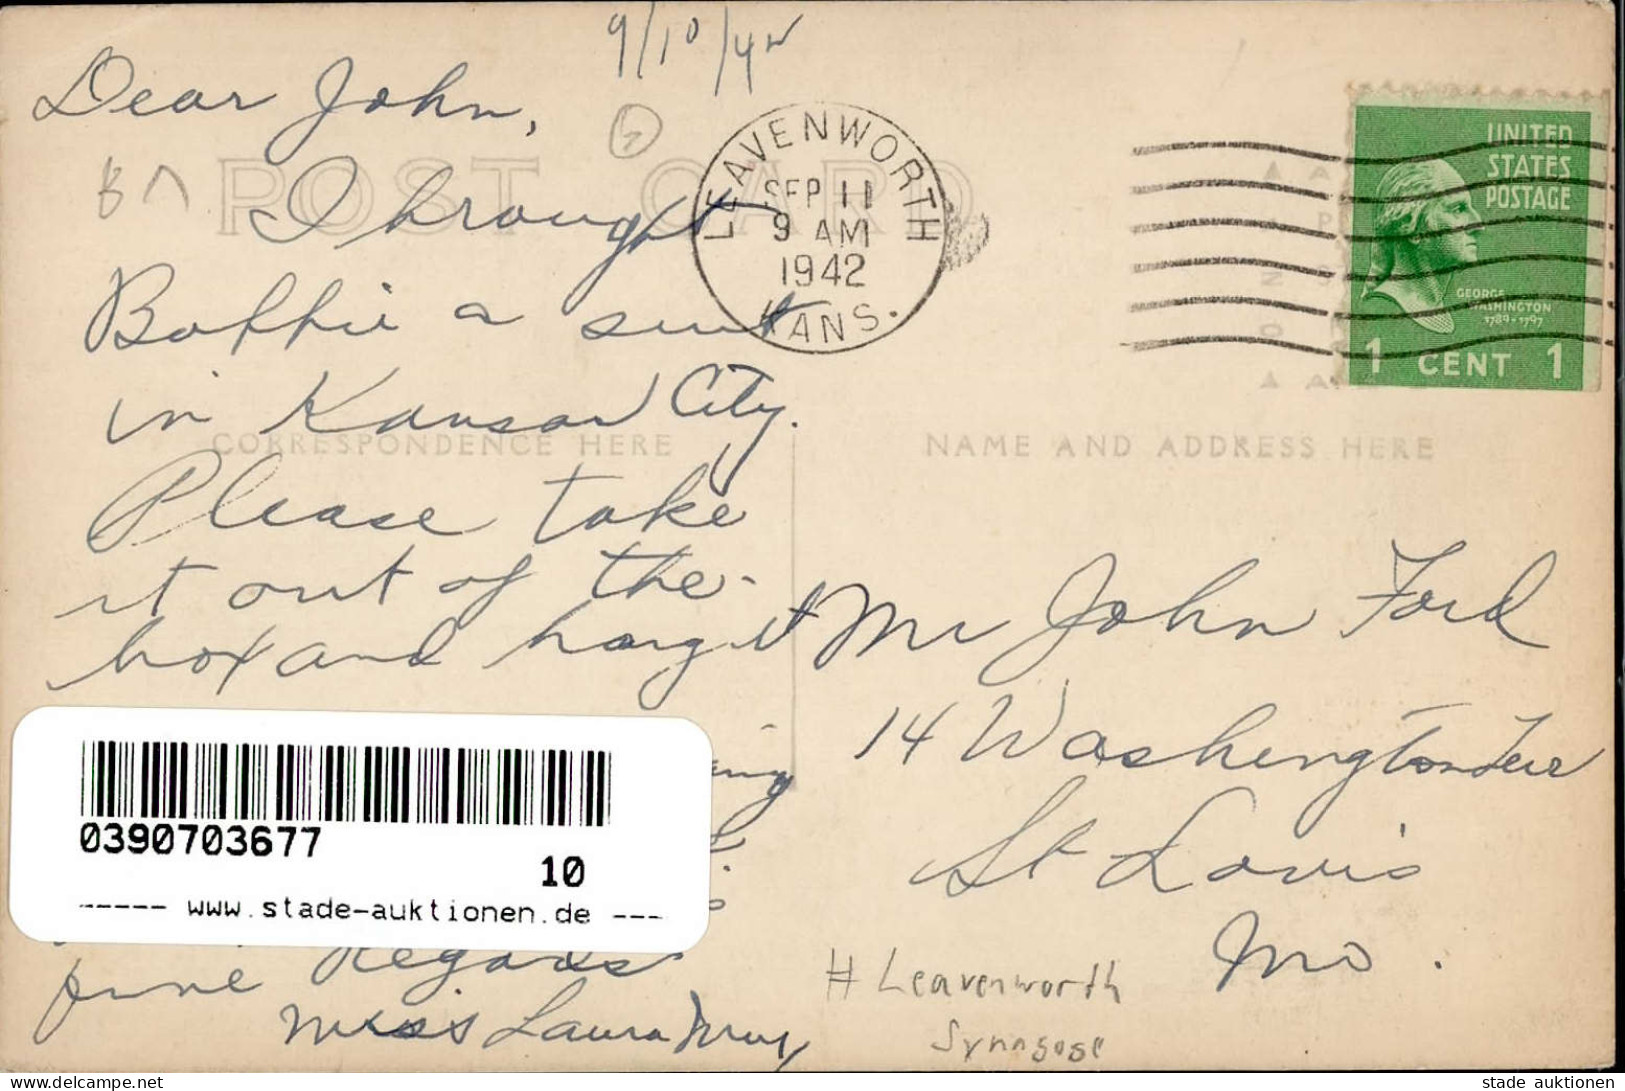 9/10/42
Dear John,
7
POST CARD
I brought
Boffie a suit
in Kansas City.
CORRESPONDENCE HERE
Please take
it out of the
box and hang it
fine Regards
Miss Laura
LEAVENWORTH
SEP 11
9 AM
1942
KANS.
UNITED
STATES
POSTAGE
GEORGE
WASHINGTON
1789-1797
1 CENT 1
NAME AND ADDRESS HERE
Mr John Ford
14 Washington Terr
St Louis
Mo.
# Leavenworth
Synagoge
0390703677
10
----- www.stade-auktionen.de ---
www.delcampe.net
stade auktionen